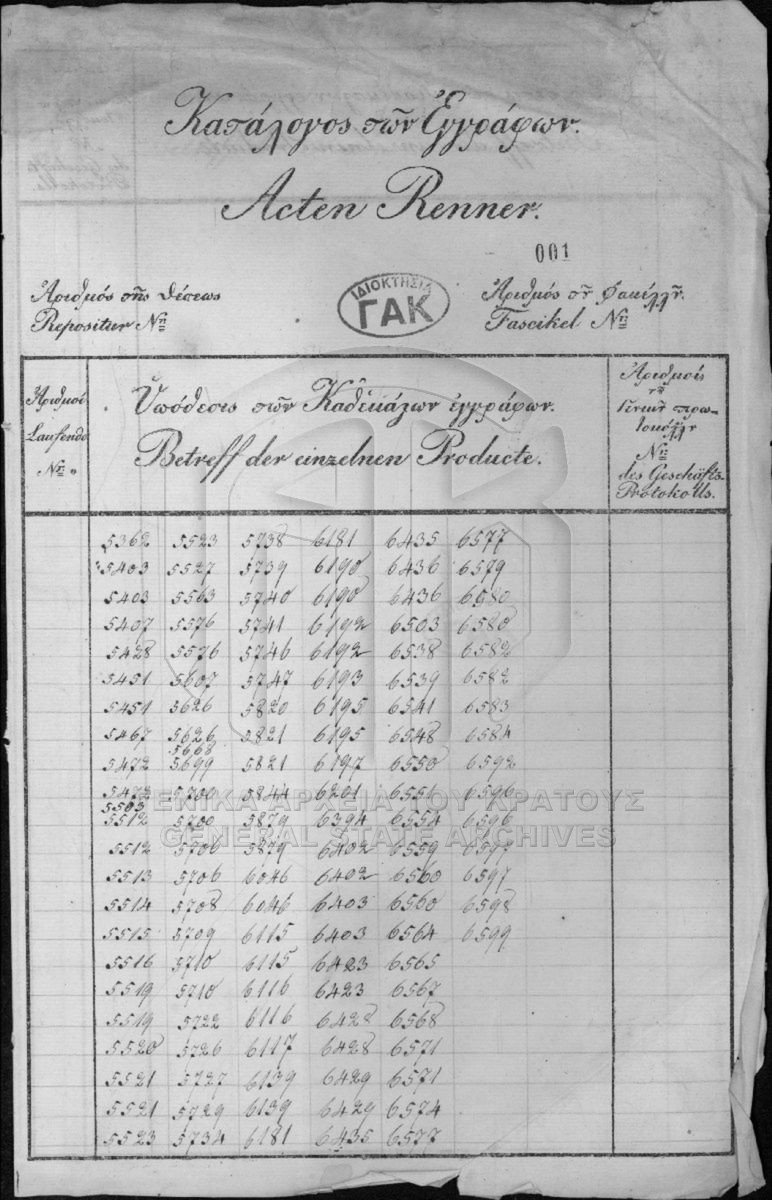 Κατάλογος τῶν Ἐγγράφων.
Acten Renner.
001
Ἀριθμός τῆς θέσεως
Repositur Nr:
ΙΔΙΟΚΤΗΣΙΑ
ΓΑΚ
Ἀριθμός τ. Φακέλλ.
Fascikel Nr:
Ἀριθμοί
Laufende
Nr:
Ὑπόθεσις τῶν Καθεκάστων ἐγγράφων.
Betreff der einzelnen Producte.
Ἀριθμοίς
Γενικ. πρω-
τοκόλλ.
Nr:
des Geschäfts-
Protokolls.
5362 5523 5738 6181 6435 6577
5403 5527 5739 6190 6436 6579
5403 5563 5740 6190 6436 6580
5407 5576 5741 6192 6503 6580
5428 5576 5746 6192 6538 6582
5451 5607 5747 6193 6539 6582
5451 5626 5820 6195 6541 6583
5467 5626 5821 6195 6548 6584
5668
5472 5699 5821 6197 6550 6592
5472 5700 5844 6201 6551 6596
5503
5512 5700 5879 6394 6554 6596
5512 5706 5879 6402 6559 6597
5513 5706 6046 6402 6560 6597
5514 5708 6046 6403 6560 6598
5515 5709 6115 6403 6564 6599
5516 5710 6115 6423 6565
5519 5710 6116 6423 6567
5519 5722 6116 6428 6568
5520 5726 6117 6428 6571
5521 5727 6139 6429 6571
5521 5729 6139 6429 6574
5523 5734 6181 6435 6577
ΓΕΝΙΚΑ ΑΡΧΕΙΑ ΤΟΥ ΚΡΑΤΟΥΣ
GENERAL STATE ARCHIVES